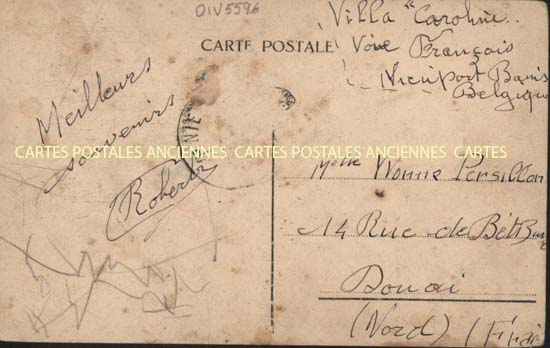 DIV5596
Villa "Caroline"
Voie Français
Nieuport Bains
Belgique
CARTE POSTALE
Meilleurs
souvenirs
Robert
CARTES POSTALES ANCIENNES CARTES POSTALES ANCIENNES CARTES
Melle Yvonne Persillon
14 Rue de
Douai
(Nord)